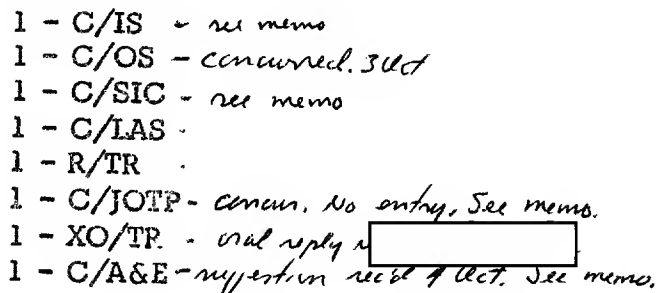 1 - C/IS - see memo
1 - C/OS - concurred. 3 Oct
1 - C/SIC - see memo
1 - C/LAS -
1 - R/TR -
1 - C/JOTP - concur. No entry. See memo.
1 - XO/TR - oral reply
1 - C/A&E - suggestion rec'd 4 Oct. See memo.